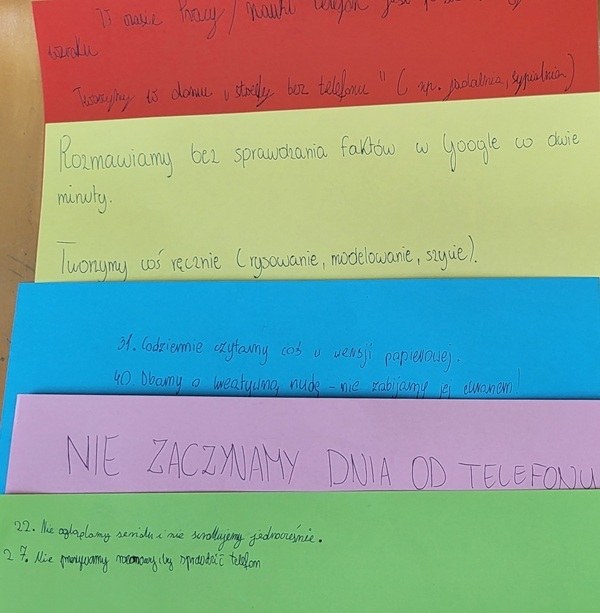 W czasie Pracy / nauki telefon jest poza
wzroku
Tworzymy w domu „strefy bez telefonu" (np. jadalnia, sypialnia)
Rozmawiamy bez sprawdzania faktów w Google co dwie
minuty.
Tworzymy coś ręcznie (rysowanie, modelowanie, szycie).
31. Codziennie czytamy coś w wersji papierowej.
40. Dbamy o kreatywną nudę - nie zabijamy jej ekranem!
NIE ZACZYNAMY DNIA OD TELEFONU
22. Nie oglądamy serialu i nie scrollujemy jednocześnie.
27. Nie przerywamy rozmowy by sprawdzić telefon